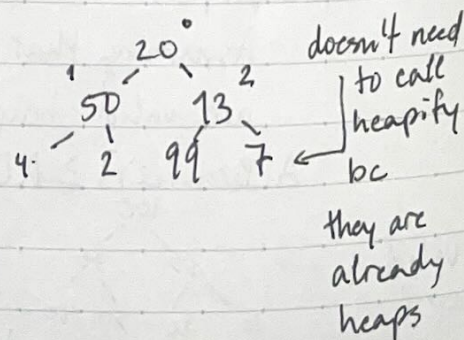 20 0
1 2
50 13
4. 2 99 7
doesn't need
to call
heapify
bc
they are
already
heaps